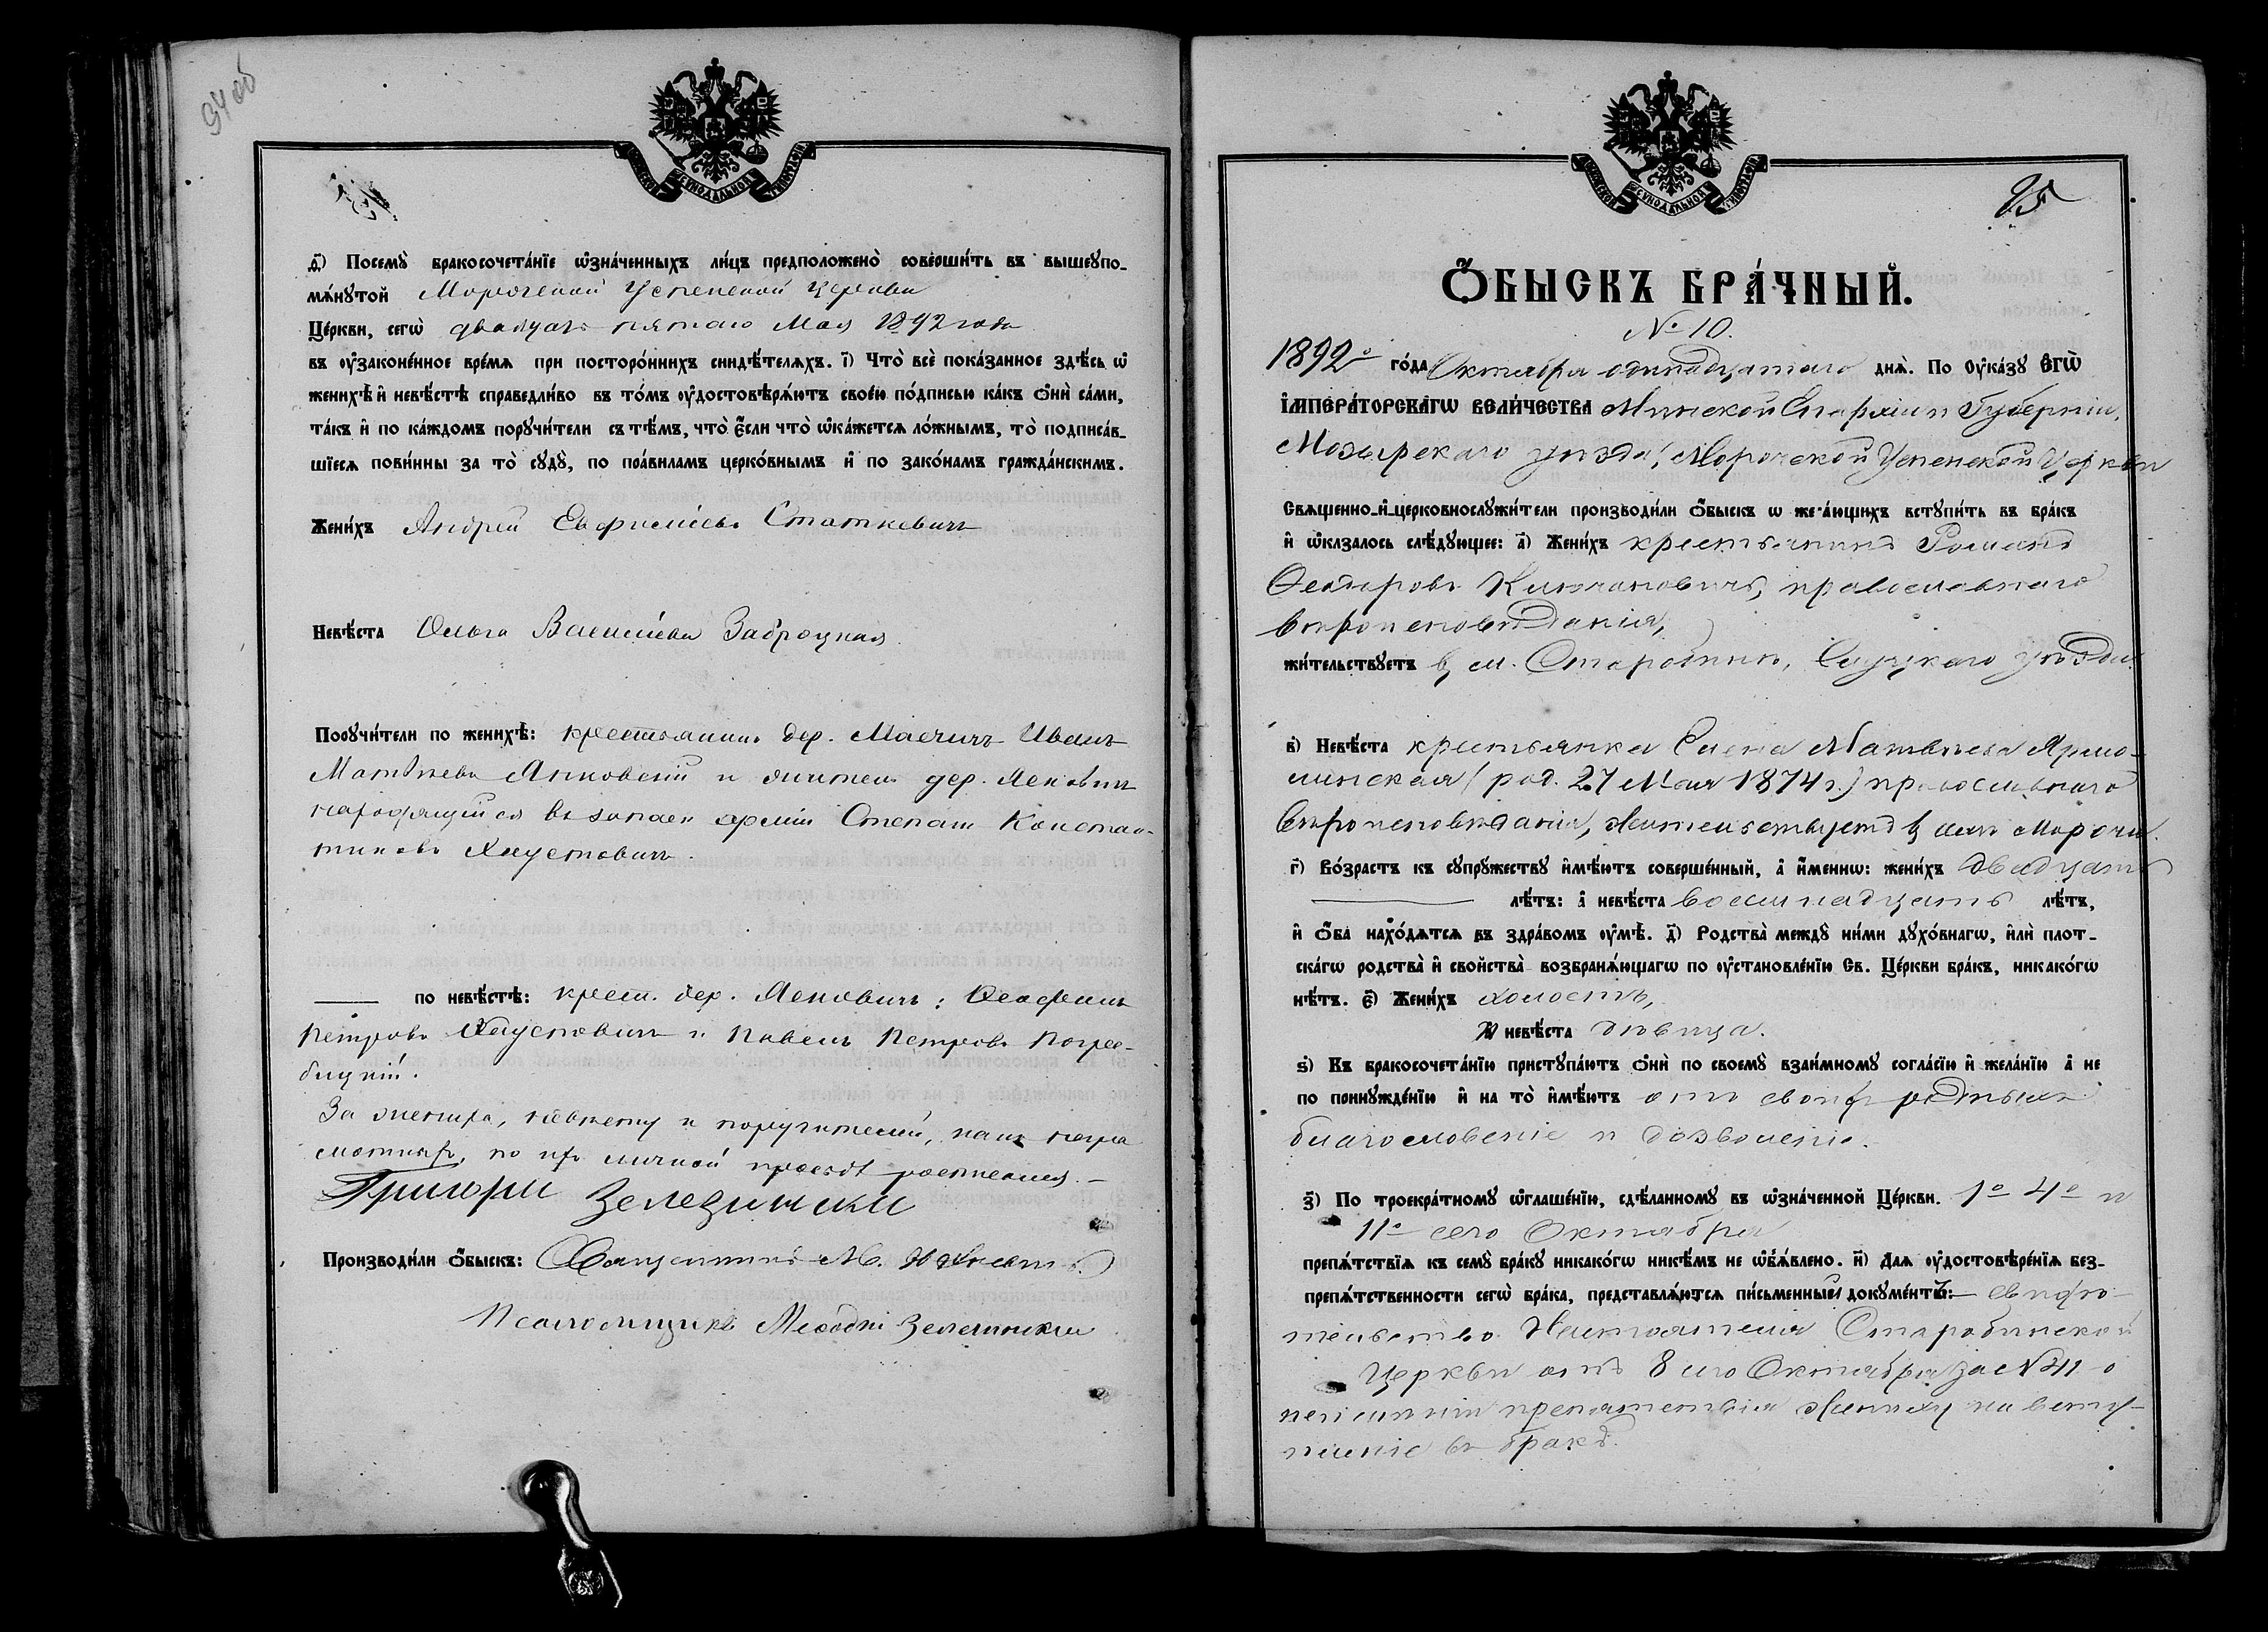 94 об
СѴНОДАЛЬНОЙ
ѳ҃) Посемꙋ бракосочета́нїе ѡ҆зна́ченныхъ ли́цъ предположено̀ соверши́ть въ вышеꙋпо-
мѧ́нꙋтой Морочской Успенской церкви
Це́ркви, сегѡ̀ двадцать пятаго Мая 1892 года
въ ᲂу҆законе́нное вре́мѧ при посторо́ннихъ свидѣ́телѧхъ. і҃) Что̀ всѐ пока́занное здѣ́сь ѡ҆
женихѣ̀ и҆ невѣ́стѣ справедли́во въ то́мъ ᲂу҆достовѣрѧ́ютъ свое́ю по́дписью ка́къ ѻ҆нѝ са́ми,
та́къ и҆ по ка́ждомъ порꙋчи́тели съ тѣ́мъ, что̀ є҆́сли что̀ ѡ҆ка́жетсѧ ло́жнымъ, то̀ подписа́в-
шїесѧ пови́нны за то̀ сꙋдꙋ̀, по пра́виламъ церко́внымъ и҆ по зако́намъ гражда́нскимъ.
Жени́хъ Андрей Евфиміевъ Статкевичъ
Невѣ́ста Ольга Василіева Заброцкая
Порꙋчи́тели по женихѣ̀: крестьянинъ дер. Маечичъ Иванъ
Матвѣевъ Янковскій и житель дер. Ясковичъ
находящійся въ запасѣ арміи Степанъ Констан-
тиновъ Хаустовичъ.
по невѣ́стѣ: крест. дер. Ясковичъ: Ѳеофилъ
Петровъ Хаустовичъ и Павелъ Петровъ Погре-
бицкій.
За жениха, невѣсту и поручителей,
по ихъ личной просьбѣ
Григори Зелезински
Производи́ли ѻ҆́быскъ: Священникъ М.
Псаломщикъ Меѳодій
СѴНОДАЛЬНОЙ
95
Ѻ҆БЫСКЪ БРА́ЧНЫЙ.
№ 10.
1892го го́да Октября одинадцатаго днѧ̀. По ᲂу҆ка́зꙋ Є҆гѡ̀
І҆мпера́торскагѡ вели́чества Минской Епархіи и Губерніи,
Мозырскаго уѣзда, Морочской Успенской Церкви
Свѧщенно-и҆-церковнослꙋжи́тели производи́ли ѻ҆́быскъ ѡ жела́ющихъ встꙋпи́ть въ бра́къ
и҆ ѡ҆казалось слѣ́дꙋющее: а҃) Жени́хъ крестьянинъ Романъ
Ѳеодоровъ Климановичъ, православнаго
вѣроисповѣданія,
жи́тельствꙋетъ въ м. Старобинѣ, Слуцкаго уѣзда.
в҃) Невѣ́ста крестьянка Елена Матвѣева Ярмо-
линская (род. 27 Мая 1874 г.) православнаго
вѣроисповѣданія, жительствуетъ въ селѣ Морочи.
г҃) Во́зрастъ къ сꙋпрꙋжествꙋ и҆мѣ́ютъ соверше́нный, а҆ и҆́меннѡ: жени́хъ двадцать
лѣ́тъ: а҆ невѣ́ста восемнадцать лѣ́тъ,
и҆ ѻ҆́ба нахо́дѧтсѧ въ здра́вомъ ᲂу҆мѣ̀. д҃) Родства̀ междꙋ̀ ни́ми дꙋхо́внагѡ, и҆лѝ плот-
ска́гѡ родства̀ и҆ свойства̀ возбранѧ́ющагѡ по ᲂу҆становле́нїю Св. Це́ркви бра́къ, никако́гѡ
нѣ́тъ. є҃) Жени́хъ холостъ,
а҆ невѣ́ста дѣвица.
ѕ҃) Къ бракосочета́нїю пристꙋпа́ютъ ѻ҆нѝ по своемꙋ̀ взаи́мномꙋ согла́сїю и҆ жела́нїю а҆ не
по принꙋжде́нїю и҆ на то̀ и҆мѣ́ютъ отъ своихъ родныхъ
благословеніе и дозволеніе.
з҃) По троекра́тномꙋ ѡ҆глаше́нїю, сдѣ́ланномꙋ въ ѡ҆зна́ченной Це́ркви. 1о 4о и
11о сего Октября
препѧ́тствїѧ къ семꙋ̀ бра́кꙋ никако́гѡ никѣ́мъ не ѡ҆б̾ѧ́влено. и҃) Длѧ ᲂу҆достовѣре́нїѧ без-
препѧ́тственности сегѡ̀ бра́ка, представлѧ́ютсѧ пи́сьменный докꙋме́нтъ: свидѣ-
тельство Настоятеля Старобинской
Церкви отъ 8 сего Октября за № 41 о
неимѣніи препятствія жениху на всту-
пленіе въ бракъ.